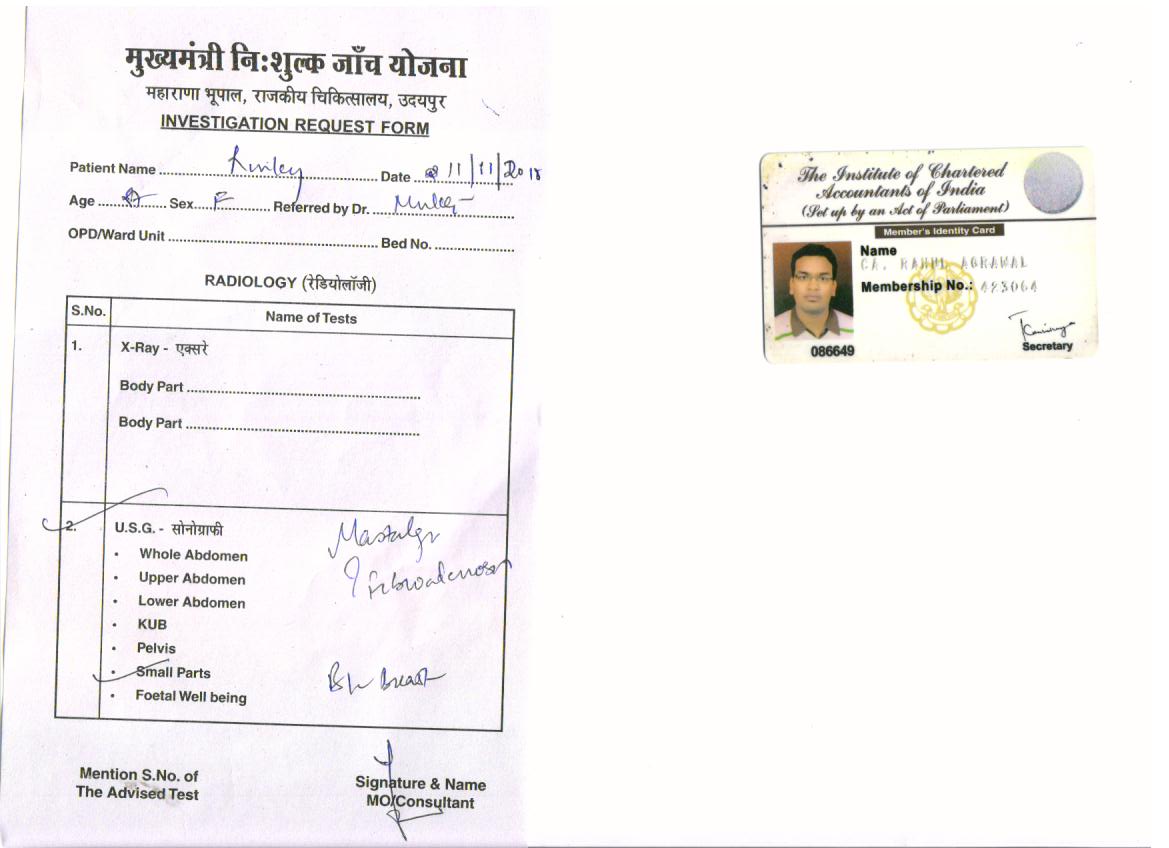 मुख्यमंत्री नि:शुल्क जाँच योजना
महाराणा भूपाल, राजकीय चिकित्सालय, उदयपुर
INVESTIGATION REQUEST FORM
Patient Name Date 11/11/2018
Age Sex F Referred by Dr.
OPD/Ward Unit Bed No.
RADIOLOGY (रेडियोलॉजी)
S.No. Name of Tests
1. X-Ray - एक्सरे
Body Part
Body Part
2. U.S.G. - सोनोग्राफी
Whole Abdomen
Upper Abdomen
Lower Abdomen
KUB
Pelvis
Small Parts
Foetal Well being
? Fibroadenosis
B/L Breast
Mention S.No. of
The Advised Test
Signature & Name
MO/Consultant
The Institute of Chartered
Accountants of India
(Set up by an Act of Parliament)
Member's Identity Card
Name
CA. RAHUL AGRAWAL
Membership No.: 423064
086649
Secretary